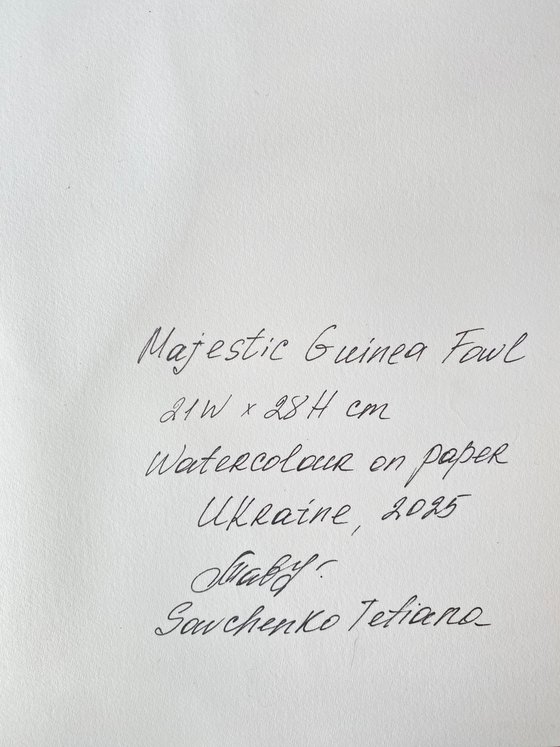 Majestic Guinea Fowl
21W x 28H cm
Watercolour on paper
Ukraine, 2025
Savchenko Tetiana